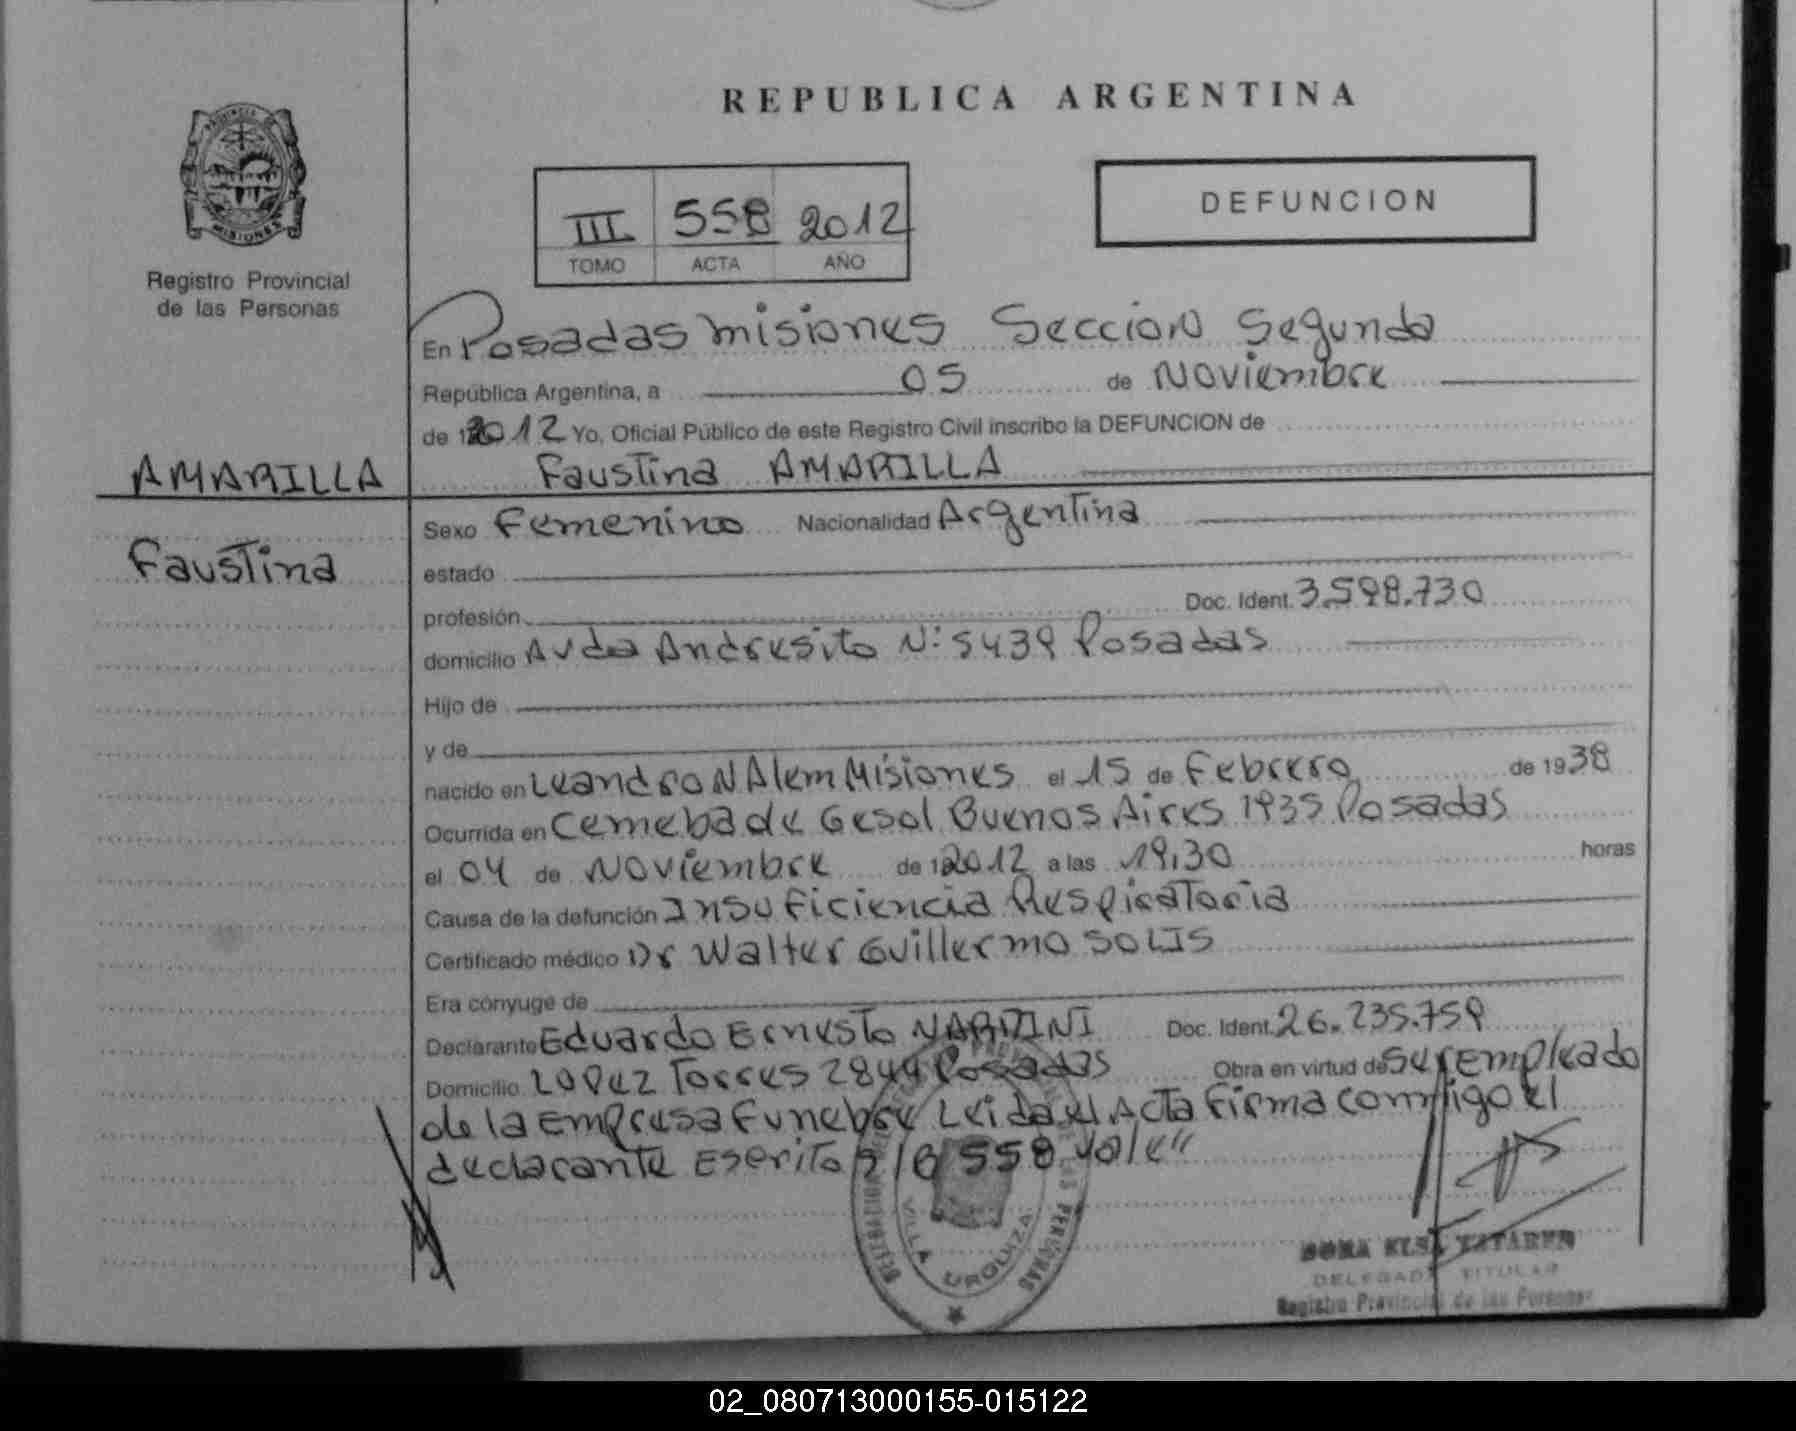 REPUBLICA ARGENTINA
III 558 2012
TOMO ACTA AÑO
DEFUNCION
MISIONES
Registro Provincial
de las Personas
En Posadas misiones Seccion Segunda
República Argentina, a 05 de Noviembre
de 2012 Yo, Oficial Público de este Registro Civil inscribo la DEFUNCION de
AMARILLA
Faustina AMARILLA
Faustina
Sexo Femenino Nacionalidad Argentina
estado
profesión Doc. Ident. 3.598.730
domicilio Avda Andresito N: 5439 Posadas
Hijo de
y de
nacido en Leandro N Alem Misiones el 15 de Febrero de 1938
Ocurrida en Cemebade Gesal Buenos Aires 1935 Posadas
el 04 de Noviembre de 2012 a las 19,30 horas
Causa de la defunción Insuficiencia Respiratoria
Certificado médico Dr Walter Guillermo SOLIS
Era cónyuge de
Declarante Eduardo Ernesto NARDINI Doc. Ident. 26.235.759
Domicilio Lopez Torres 2849 Posadas Obra en virtud de ser Empleado
de la Empresa Funebre Leida el Acta Firma conmigo el
declarante Escrito s/b 558 vale"
VILLA URQUIZA
DELEGADA TITULAR
Registro Provincial de las Personas
02_080713000155-015122